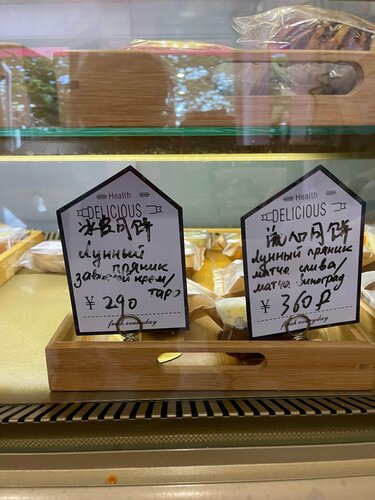 Health
DELICIOUS
冰皮月饼
Лунный
пряник
заварной крем/
таро
¥ 290
fresh everyday
Health
DELICIOUS
流心月饼
Лунный пряник
матча слива/
матча виноград
¥ 360₽
fresh everyday